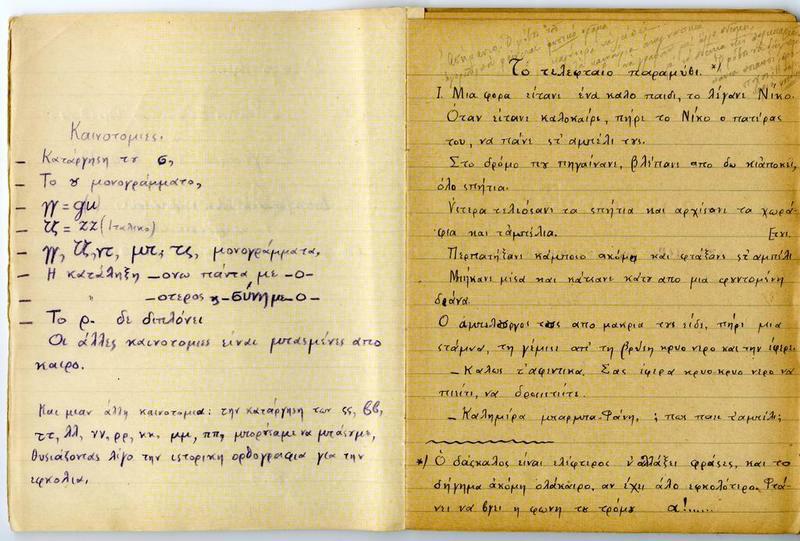 Καινοτομιες.
– Κατάργηση του σ,
– Το ȣ μονογράμματο,
– γγ = gu
– τζ = zz (Ιταλικο)
– γγ, τζ, ντ, μπ, τς, μονογράμματα,
– Η κατάληξη –ονω παντα με –ο–
– " –οτερος ϗ –σύνη με –ο–
– Το ρ. δε διπλόνει
Οι άλλες καινοτομιες είναι μπασμένες απο
καιρο.
Και μιαν άλλη καινοτομια: την κατάργηση των ςς, ββ,
ττ, λλ, νν, ρρ, κκ, μμ, ππ, μπορȣςαμε να μπάςȣμε,
θυςιάζοντας λίγο την ιςτορικη ορθογραφια για την
εφκολια.
Το τελεφταιο παραμύθι. */
I. Μια φορα είτανε ένα καλο παιδι, το λέγανε Νικο.
Όταν είτανε καλοκαίρι, πήρε το Νίκο ο πατέρας
του, να πάνε ςτ' αμπέλι τȣς.
Στο δρόμο πȣ πηγαίνανε, βλέπανε απο δω κι απο κει,
όλο ςπήτια.
Υςτερα τελιόςανε τα ςπήτια και αρχίςανε τα χωρά-
φια και τ' αμπέλια. [τȣς.
Περπατήξανε κάμποςο ακόμη και φτάξανε ςτ' αμπέλι
Μπήκανε μέςα και κάτςανε κάτȣ απο μια φȣντομένη
δράνα.
Ο αμπελουργος τȣς απο μακρια τȣς είδε, πήρε μια
ςτάμνα, τη γέμιςε απ' τη βρύςη κρυο νερο και την έφερε.
– Καλως τ' αφεντικα. Σας έφερα κρυο κρυο νερο να
πιείτε, να δροςιςτείτε.
– Καλημέρα μπαρμπα-Φάνη, ; πως παει τ' αμπέλι;
*/ Ο δάςκαλος είναι ελέφτερος ν' αλλάξει φράςες, και το
διήγημα ακόμη ολάκαιρο, αν έχει άλο εφκολότερο. Φτά-
νει να βγει η φωνη τȣ τρόμȣ α!.....